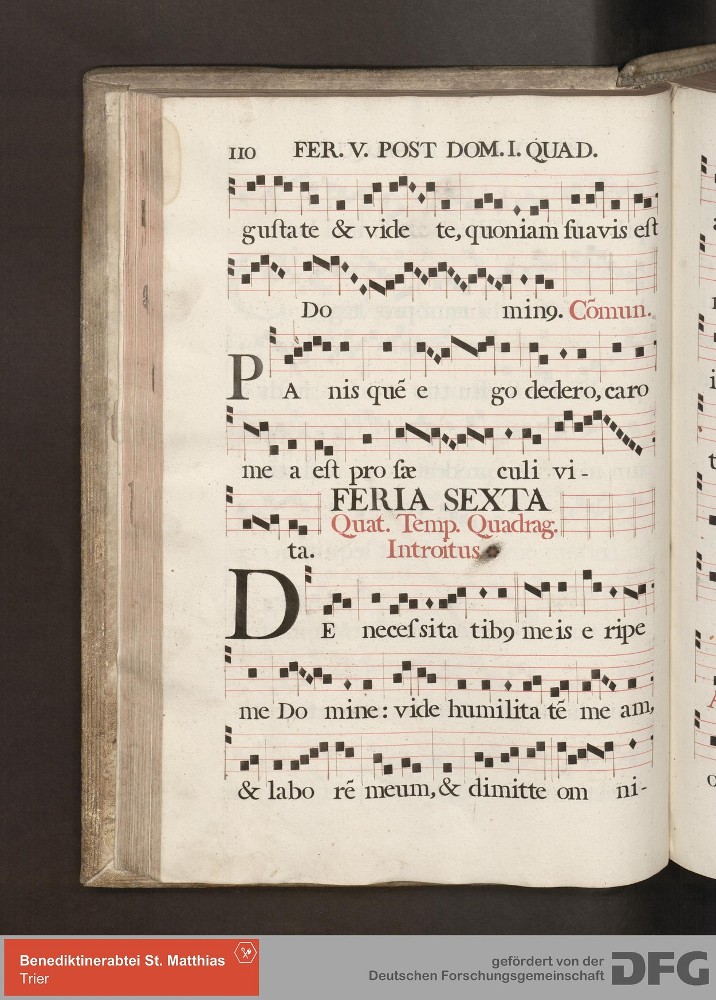 110 FER. V. POST DOM. I. QUAD.
guſtate & vide te, quoniam ſuavis eſt
Do minꝯ. Cõmun.
PA nis quẽ e go dedero, caro
me a eſt pro ſæ culi vi-
FERIA SEXTA
Quat. Temp. Quadrag.
ta. Introitus
DE neceſsita tibꝯ me is e ripe
me Do mine: vide humilita tẽ me am,
& labo rẽ meum, & dimitte om ni-
Benediktinerabtei St. Matthias
Trier
gefördert von der
Deutschen Forschungsgemeinschaft DFG